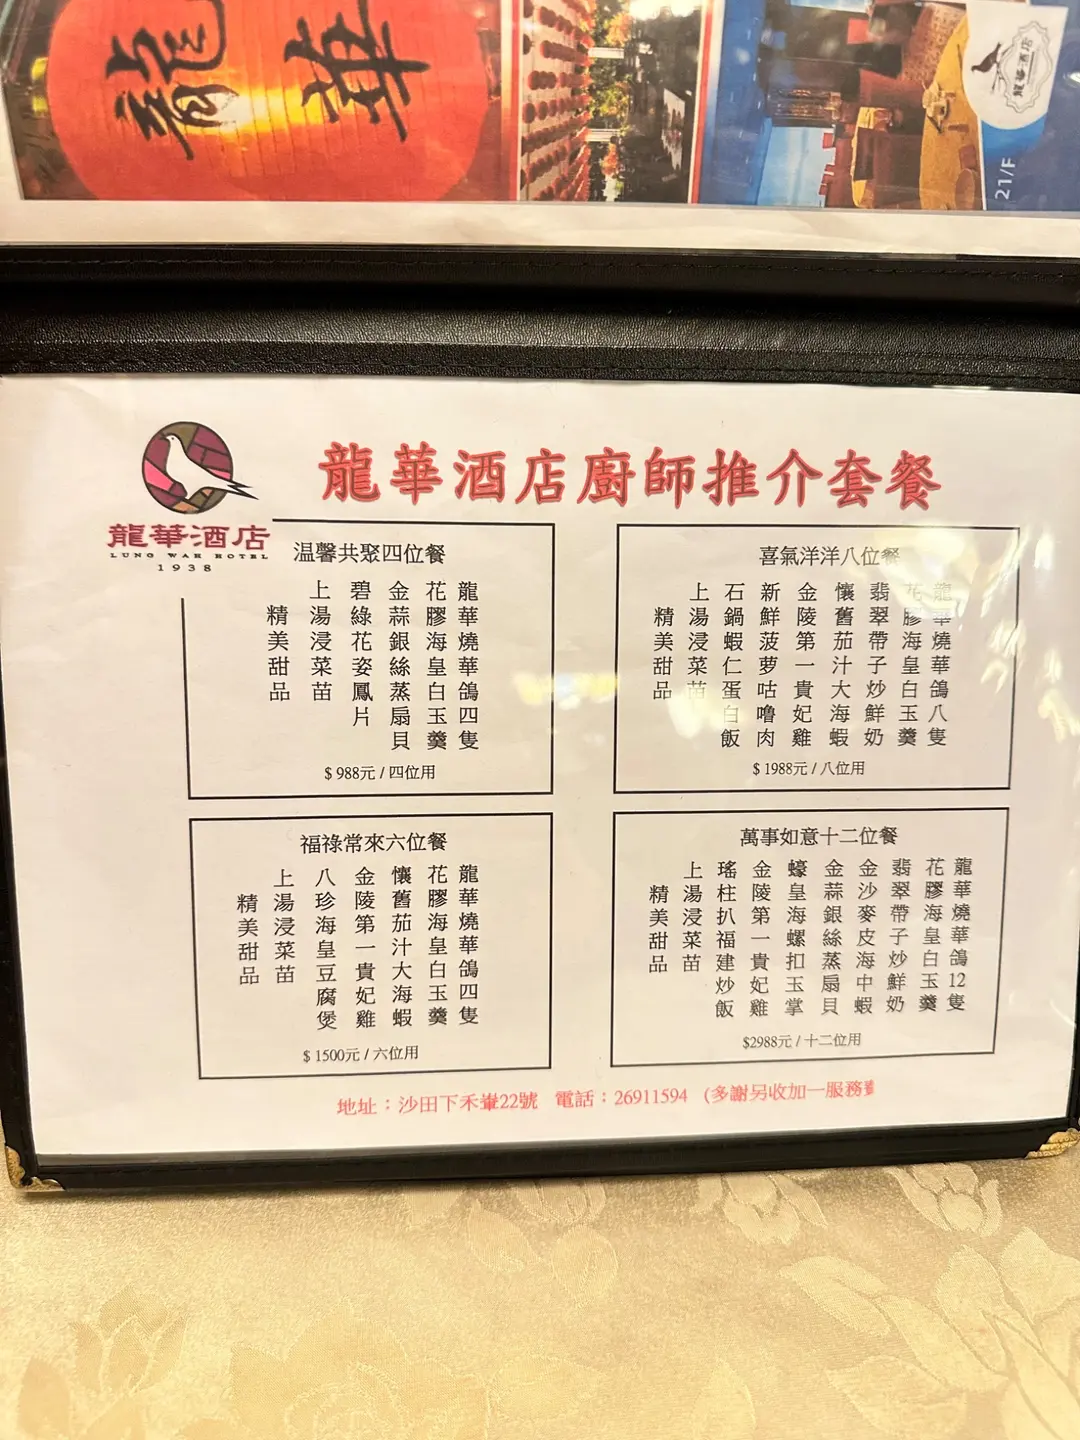 龍華
龍華酒店
21/F
龍華酒店
LUNG WAH HOTEL
1938
龍華酒店廚師推介套餐
温馨共聚四位餐
龍華燒華鴿四隻
花膠海皇白玉羹
金蒜銀絲蒸扇貝
碧綠花姿鳳片
上湯浸菜苗
精美甜品
$ 988元 / 四位用
喜氣洋洋八位餐
龍華燒華鴿八隻
花膠海皇白玉羹
翡翠帶子炒鮮奶
懷舊茄汁大海蝦
金陵第一貴妃雞
新鮮菠萝咕嚕肉
石鍋蝦仁蛋白飯
上湯浸菜苗
精美甜品
$ 1988元 / 八位用
福祿常來六位餐
龍華燒華鴿四隻
花膠海皇白玉羹
懷舊茄汁大海蝦
金陵第一貴妃雞
八珍海皇豆腐煲
上湯浸菜苗
精美甜品
$ 1500元 / 六位用
萬事如意十二位餐
龍華燒華鴿12隻
花膠海皇白玉羹
翡翠帶子炒鮮奶
金沙麥皮海中蝦
金蒜銀絲蒸扇貝
蠔皇海螺扣玉掌
金陵第一貴妃雞
瑤柱扒福建炒飯
上湯浸菜苗
精美甜品
$2988元 / 十二位用
地址：沙田下禾輋22號 電話：26911594 (多謝另收加一服務